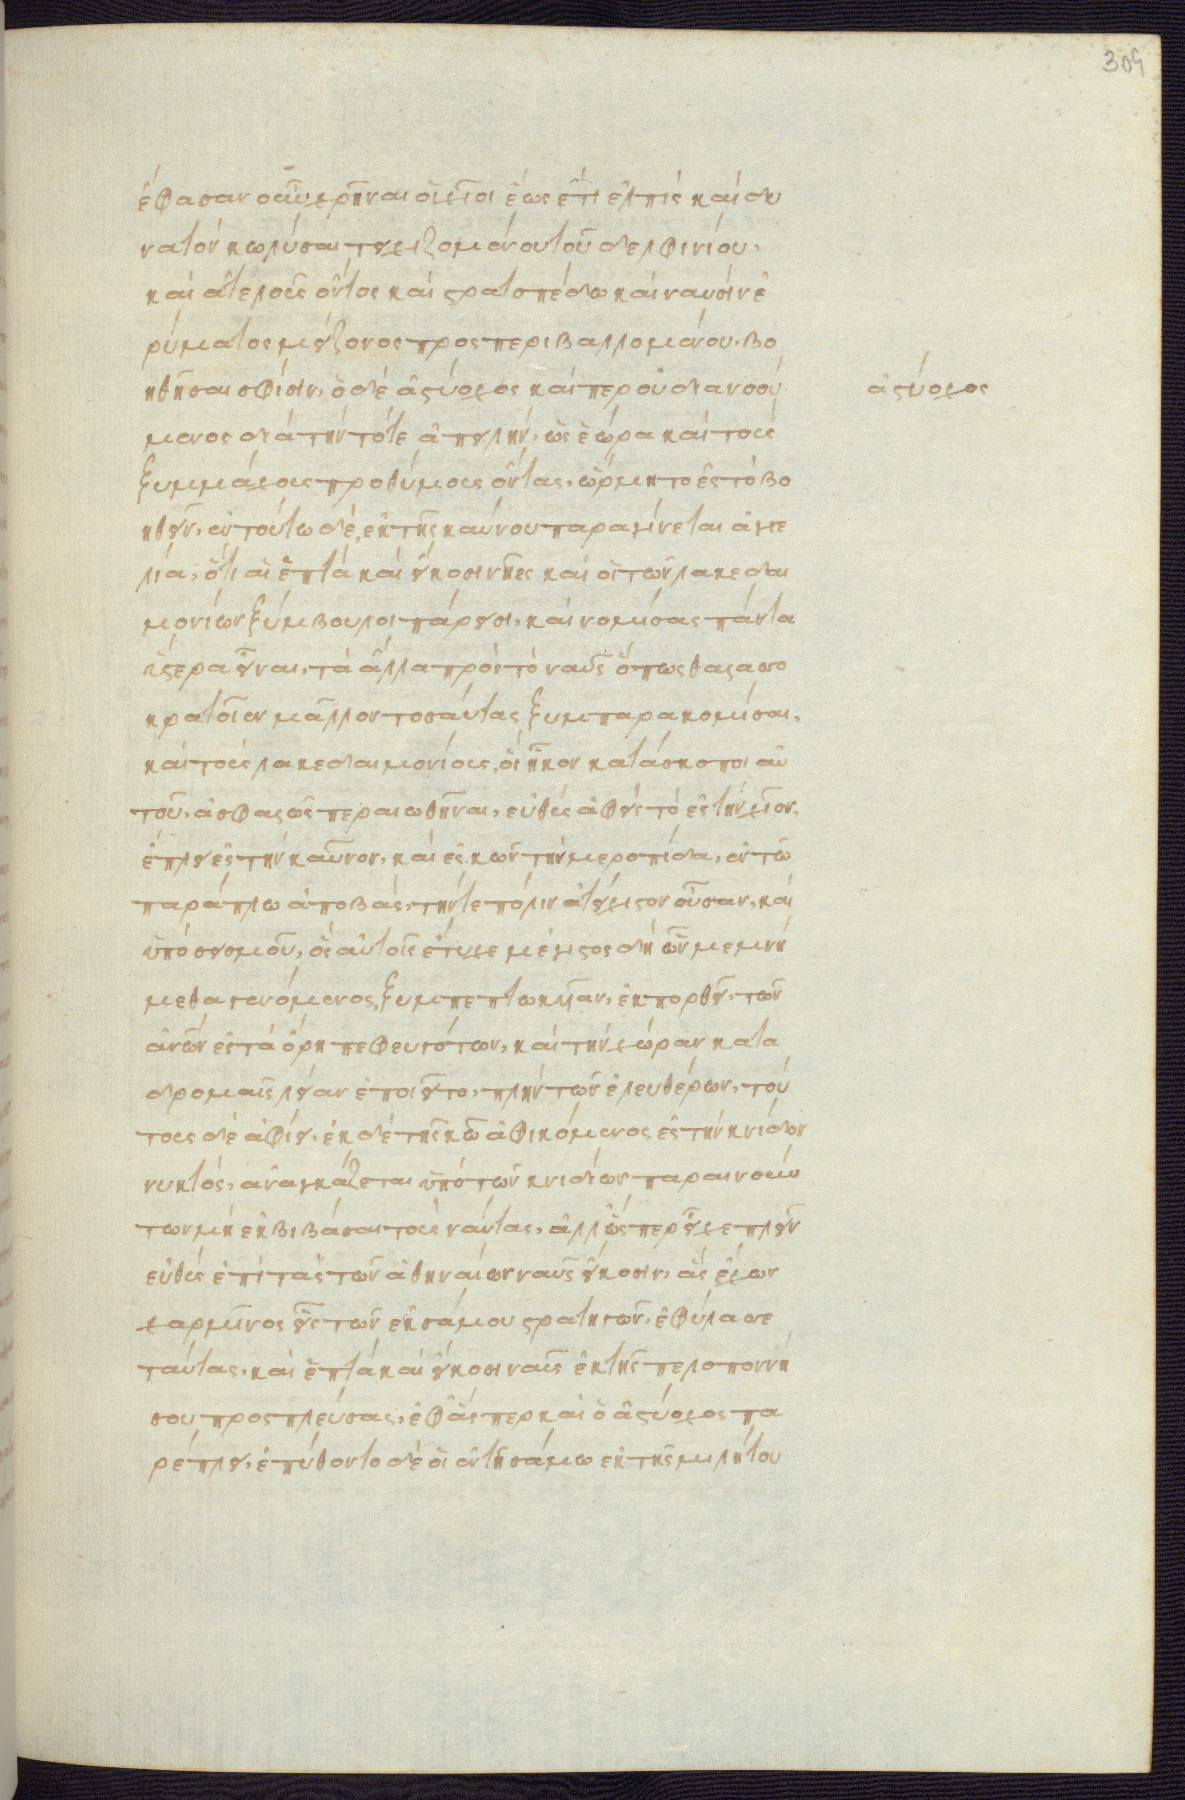 309
ἔφασαν οὖν χρῆναι οἱ χῖοι ἕως ἔτι ἐλπὶς καὶ δυ
νατὸν κωλῦσαι τειχιζομένου τοῦ δελφινίου,
καὶ ἀτελοῦς ὄντος καὶ στρατοπέδω καὶ ναυσὶν ἐ
ρύματος μείζονος προσπεριβαλλομένου, βο
ηθῆσαι σφίσιν, ὁ δὲ ἀστύοχος καίπερ οὐ διανοού
ἀστύοχος
μενος διὰ τὴν τότε ἀπειλὴν, ὡς ἑώρα καὶ τοὺς
ξυμμάχους προθύμους ὄντας, ὥρμητο ἐς τὸ βο
ηθεῖν, ἐν τούτω δὲ, ἐκ τῆς καύνου παραγίνεται ἀγγε
λία, ὅτι αἱ ἑπτὰ καὶ εἴκοσι νῆες καὶ οἱ τῶν λακεδαι
μονίων ξύμβουλοι πάρεισι, καὶ νομίσας πάντα
ὕστερα εἶναι, τὰ ἄλλα πρὸς τὸ ναῦς ὅπως θαλασσο
κρατοῖεν μᾶλλον τοσαύτας ξυμπαρακομίσαι,
καὶ τοὺς λακεδαιμονίους, οἳ ἧκον κατάσκοποι αὐ
τοῦ, ἀσφαλῶς περαιωθῆναι, εὐθὺς ἀφεὶς τὸ ἐς τὴν χῖον,
ἔπλει ἐς τὴν καῦνον, καὶ ἐς κῶν τὴν μεροπίδα, ἐν τῶ
παράπλω ἀποβὰς, τήν τε πόλιν ἀτείχιστον οὖσαν, καὶ
ὑπὸ σεισμοῦ, ὃς αὐτοῖς ἔτυχε μέγιστος δὴ ὧν μεμνή
μεθα γενόμενος, ξυμπεπτωκυῖαν, ἐκπορθεῖ, τῶν
ἀνθρώπων ἐς τὰ ὄρη πεφευγότων, καὶ τὴν χώραν κατα
δρομαῖς λείαν ἐποιεῖτο, πλὴν τῶν ἐλευθέρων, τού
τους δὲ ἀφίει, ἐκ δὲ τῆς κῶ ἀφικόμενος ἐς τὴν κνίδον
νυκτὸς, ἀναγκάζεται ὑπὸ τῶν κνιδίων παραινούν
των μὴ ἐκβιβάσαι τοὺς ναύτας, ἀλλ' ὥσπερ εἶχε πλεῖν
εὐθὺς ἐπὶ τὰς τῶν ἀθηναίων ναῦς εἴκοσιν, ἃς ἔχων
χαρμῖνος εἷς τῶν ἐκ σάμου στρατηγῶν, ἐφύλασσε
ταύτας, καὶ ἑπτὰ καὶ εἴκοσι ναῦς ἐκ τῆς πελοποννή
σου προσπλεύσας, ἐφ' ἅσπερ καὶ ὁ ἀστύοχος πα
ρέπλει, ἐπύθοντο δὲ οἱ ἐν τῆ σάμω ἐκ τῆς μιλήτου